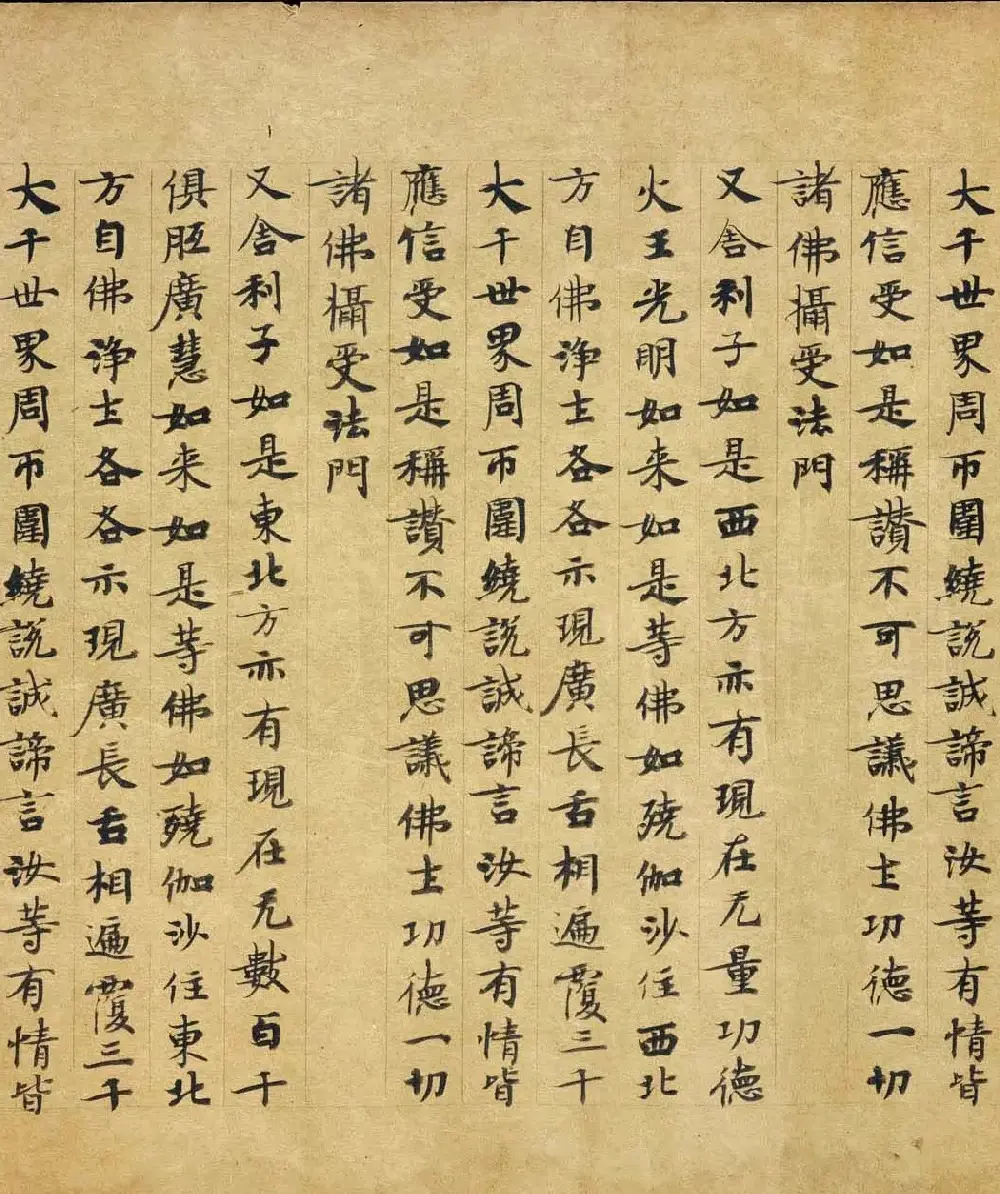 大千世界周帀圍繞說誠諦言汝等有情皆
應信受如是稱讚不可思議佛土功德一切
諸佛攝受法門
又舍利子如是西北方亦有現在无量功德
火王光明如来如是等佛如殑伽沙住西北
方自佛淨土各各示現廣長舌相遍覆三千
大千世界周帀圍繞說誠諦言汝等有情皆
應信受如是稱讚不可思議佛土功德一切
諸佛攝受法門
又舍利子如是東北方亦有現在无數百千
俱胝廣慧如来如是等佛如殑伽沙住東北
方自佛淨土各各示現廣長舌相遍覆三千
大千世界周帀圍繞說誠諦言汝等有情皆